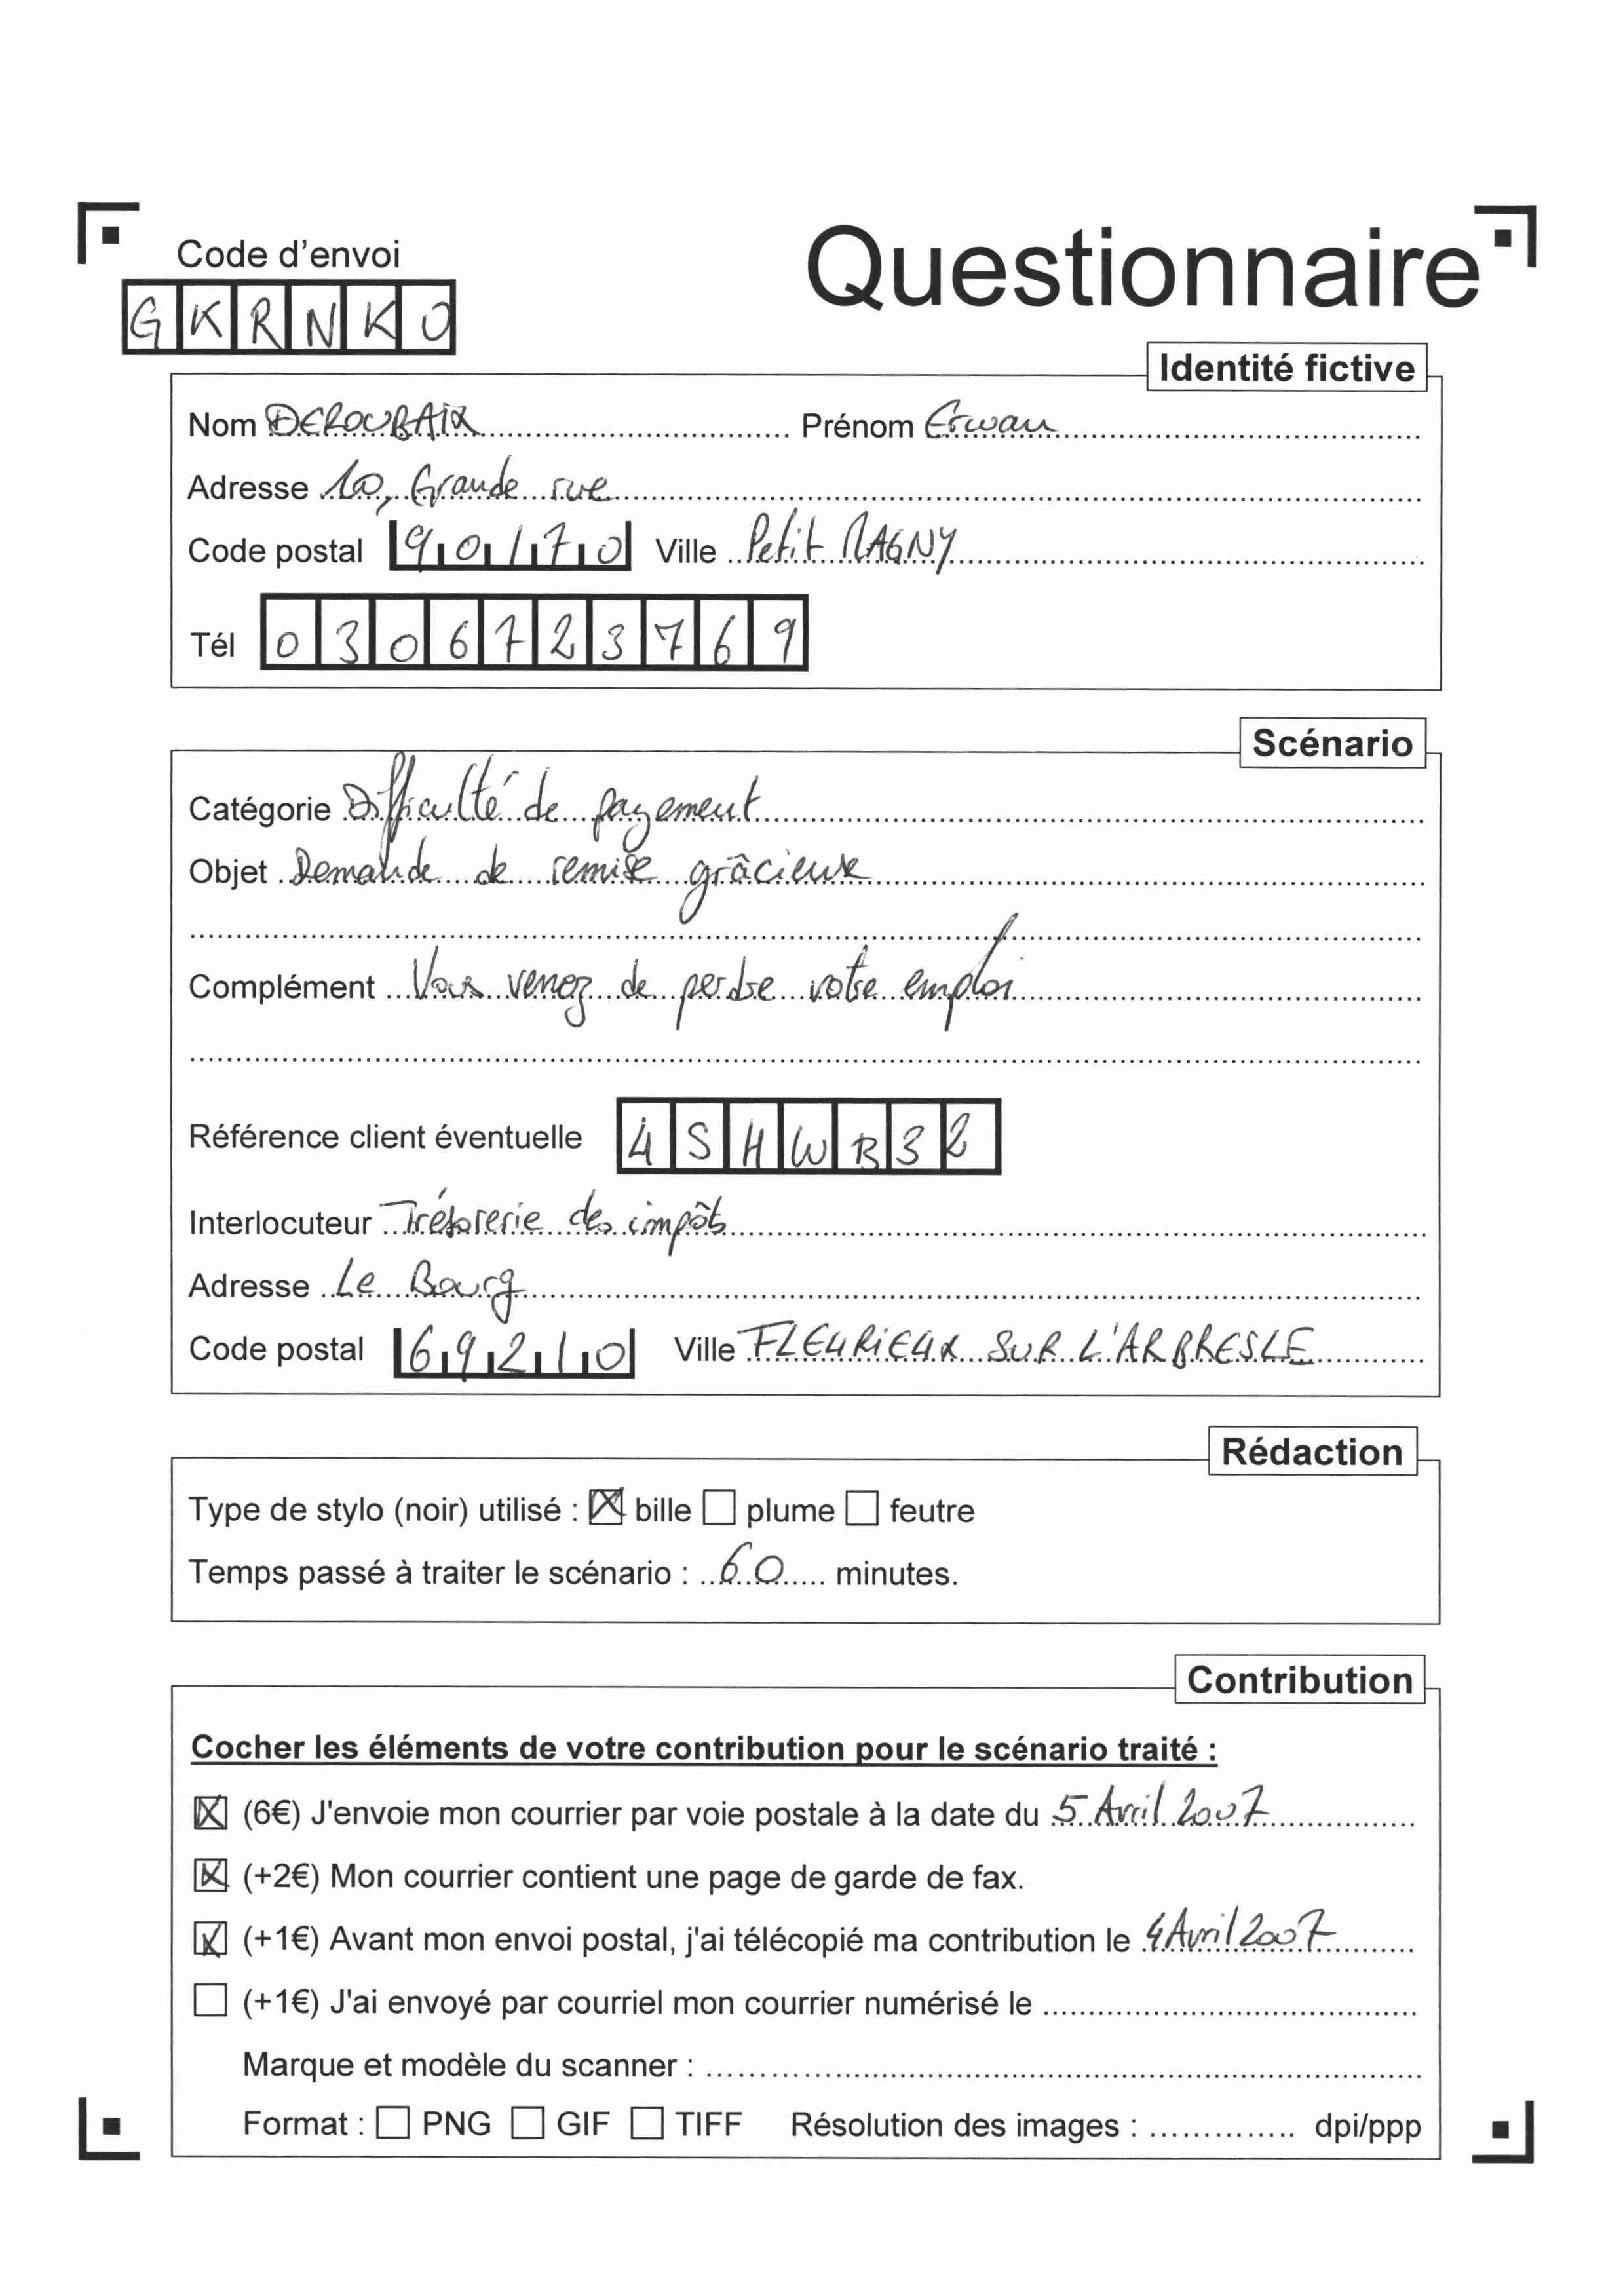 Code d'envoi
Questionnaire
GKRNKO
Identité fictive
Nom DEROUBAIX Prénom Erwan
Adresse 10, Grande rue
Code postal 90170 Ville Petit MAGNY
Tél 0306723769
Scénario
Catégorie Difficulté de payement
Objet Demande de remise grâcieuse
Complément Vous venez de perdre votre emploi
Référence client éventuelle 4SHWB32
Interlocuteur Trésorerie des impôts
Adresse Le Bourg
Code postal 69210 Ville FLEURIEUX SUR L'ARBRESLE
Rédaction
Type de stylo (noir) utilisé : ☒ bille ☐ plume ☐ feutre
Temps passé à traiter le scénario : 60 minutes.
Contribution
Cocher les éléments de votre contribution pour le scénario traité :
☒ (6€) J'envoie mon courrier par voie postale à la date du 5 Avril 2007
☒ (+2€) Mon courrier contient une page de garde de fax.
☒ (+1€) Avant mon envoi postal, j'ai télécopié ma contribution le 4 Avril 2007
☐ (+1€) J'ai envoyé par courriel mon courrier numérisé le
Marque et modèle du scanner :
Format : ☐ PNG ☐ GIF ☐ TIFF Résolution des images : dpi/ppp